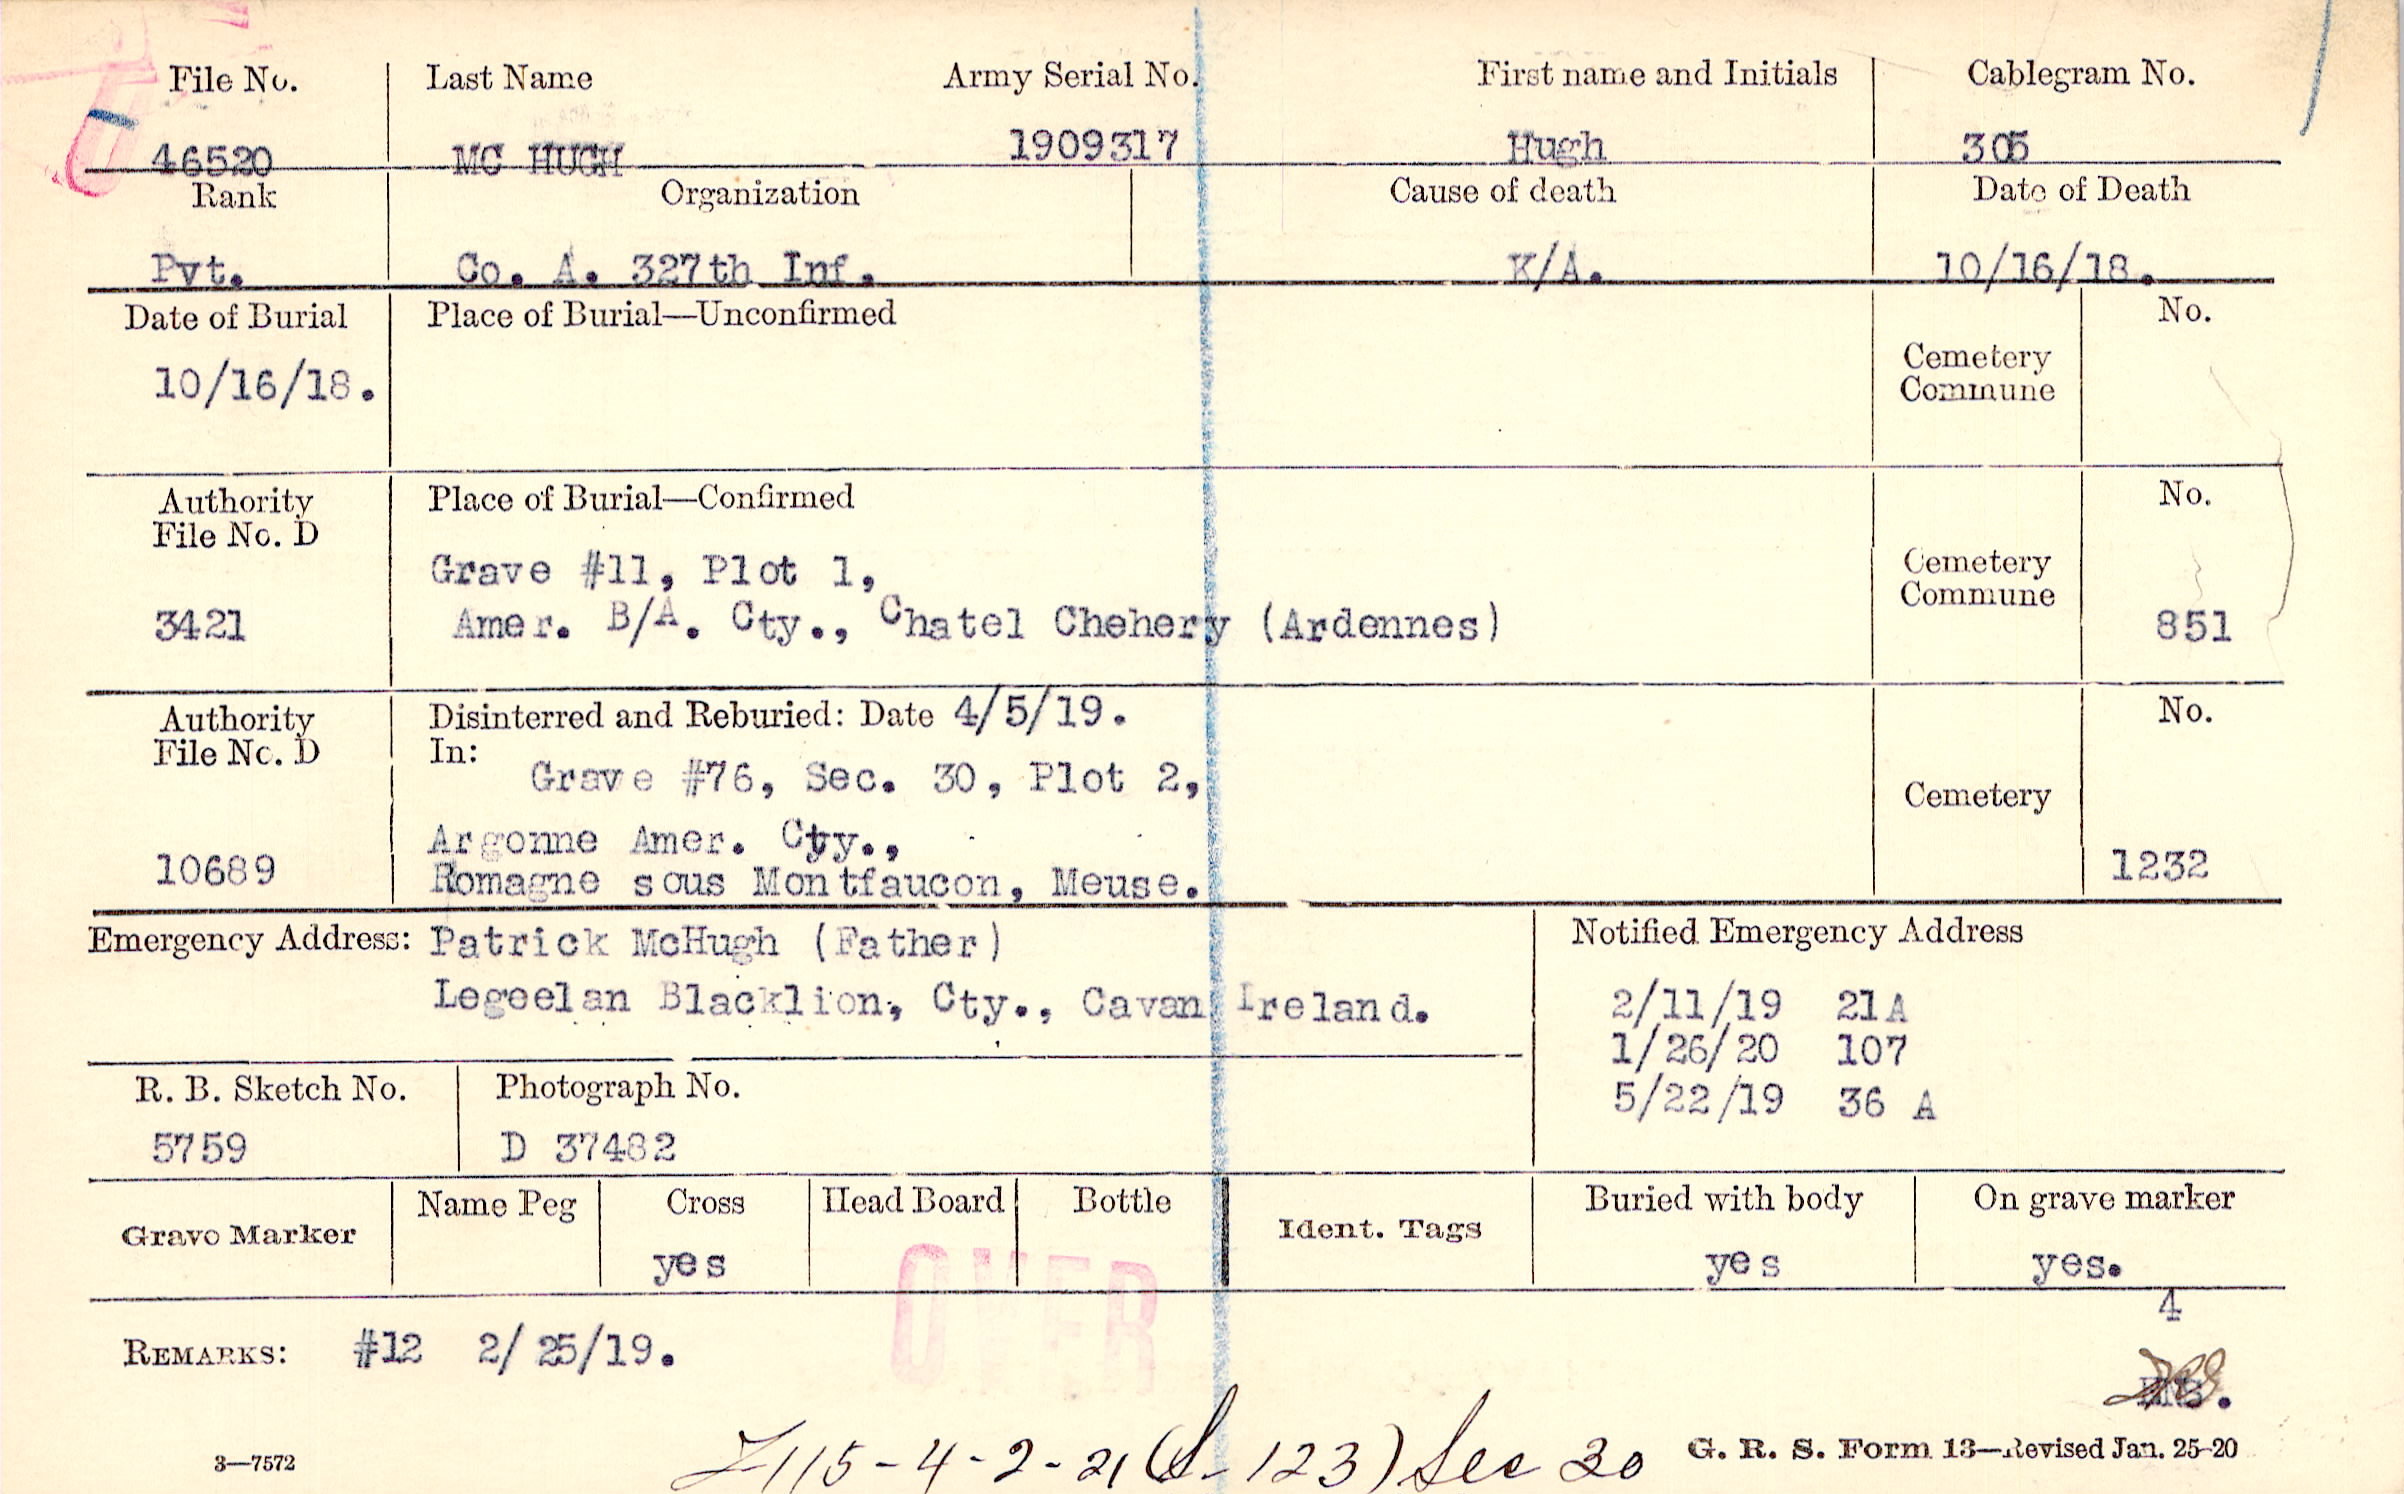 File No. Last Name Army Serial No. First name and Initials Cablegram No.
46520 MC HUGH 1909317 Hugh 305
Rank Organization Cause of death Date of Death
Pvt. Co. A. 327th Inf. K/A. 10/16/18.
Date of Burial Place of Burial—Unconfirmed No.
Cemetery
Commune
10/16/18.
Authority Place of Burial—Confirmed No.
File No. D
Grave #11, Plot 1, Cemetery
Commune
3421 Amer. B/A. Cty., Chatel Chehery (Ardennes) 851
Authority Disinterred and Reburied: Date 4/5/19. No.
File No. D In:
Grave #76, Sec. 30, Plot 2, Cemetery
Argonne Amer. Cty.,
10689 Romagne sous Montfaucon, Meuse. 1232
Emergency Address: Patrick McHugh (Father) Notified Emergency Address
Legeelan Blacklion, Cty., Cavan Ireland. 2/11/19 21A
1/26/20 107
5/22/19 36 A
R. B. Sketch No. Photograph No.
5759 D 37482
Grave Marker Name Peg Cross Head Board Bottle Ident. Tags Buried with body On grave marker
yes yes yes.
OVER
4
REMARKS: #12 2/25/19.
3—7572 G. R. S. Form 13—Revised Jan. 25-20
115-4-2-21 (S-123) Sec 30